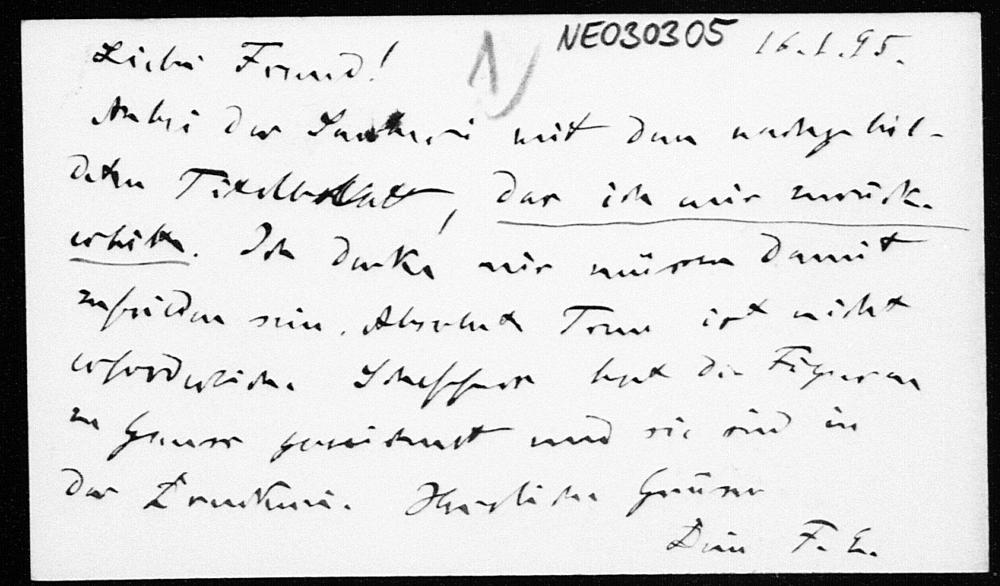 NE030305 16.1.95.
Lieber Freund!
Anbei der Saccheri mit dem nachgebil-
deten Titelblatt, das ich mir zurück-
erbitte. Ich denke wir müssen damit
zufrieden sein. Absolute Treue ist nicht
erforderlich. Scheffers hat die Figuren
zu Gauss gezeichnet und sie sind in
der Druckerei. Herzliche Grüsse
Dein F. E.